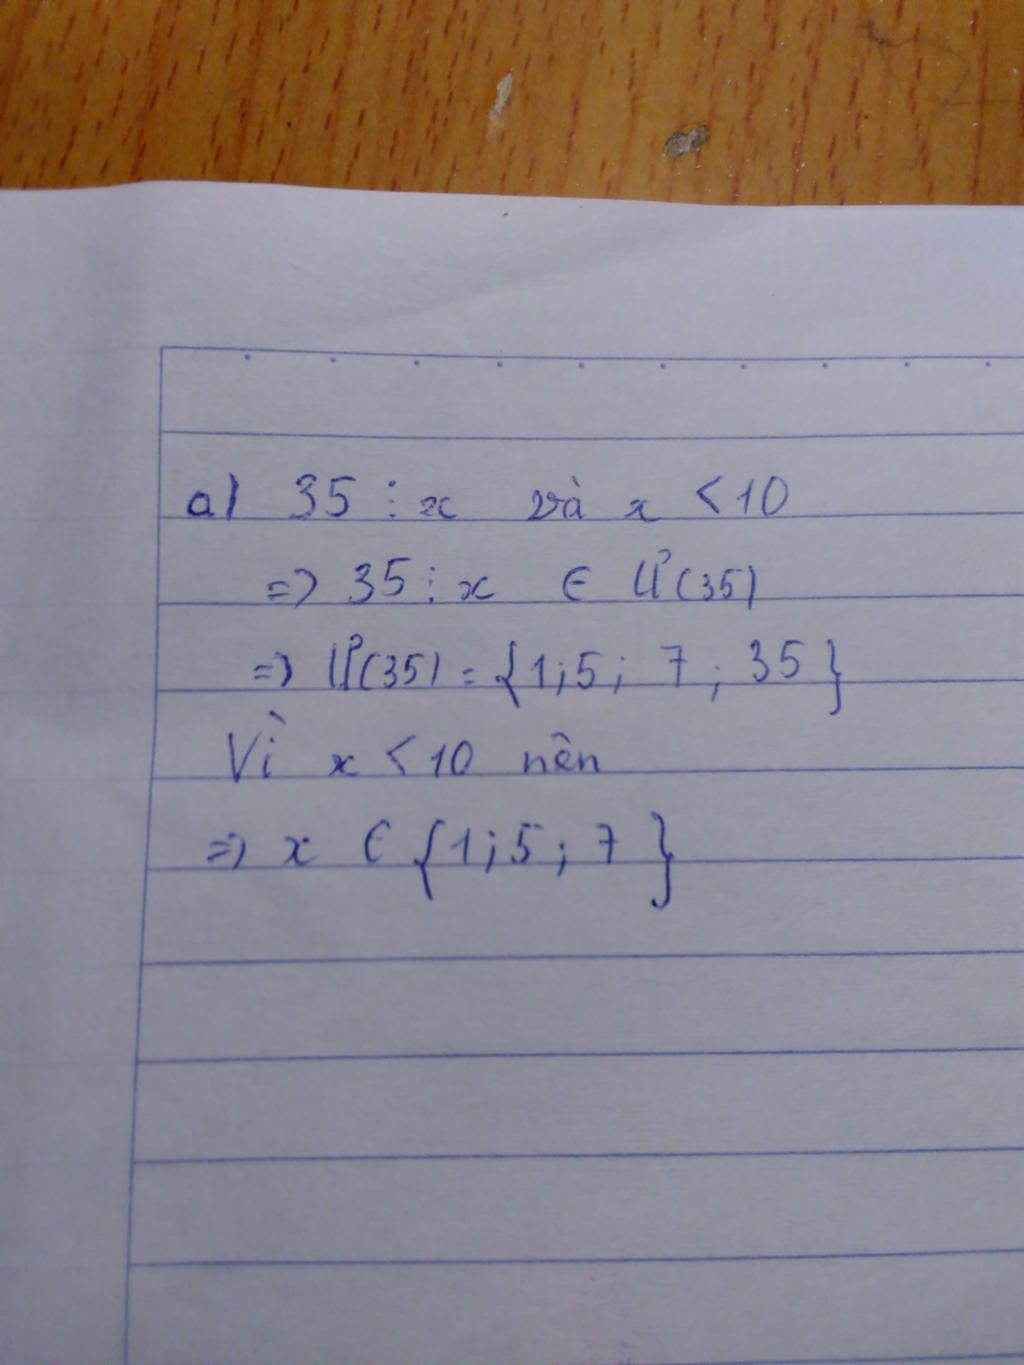 a) 35 ⋮ x và x < 10
=> 35 ⋮ x ∈ Ư(35)
=> Ư(35) = {1; 5; 7; 35}
Vì x < 10 nên
=> x ∈ {1; 5; 7}